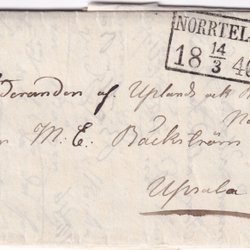 NORRTEL
18 14/3 46
deranden af Uplands och
M. E. Bäckström
Upsala